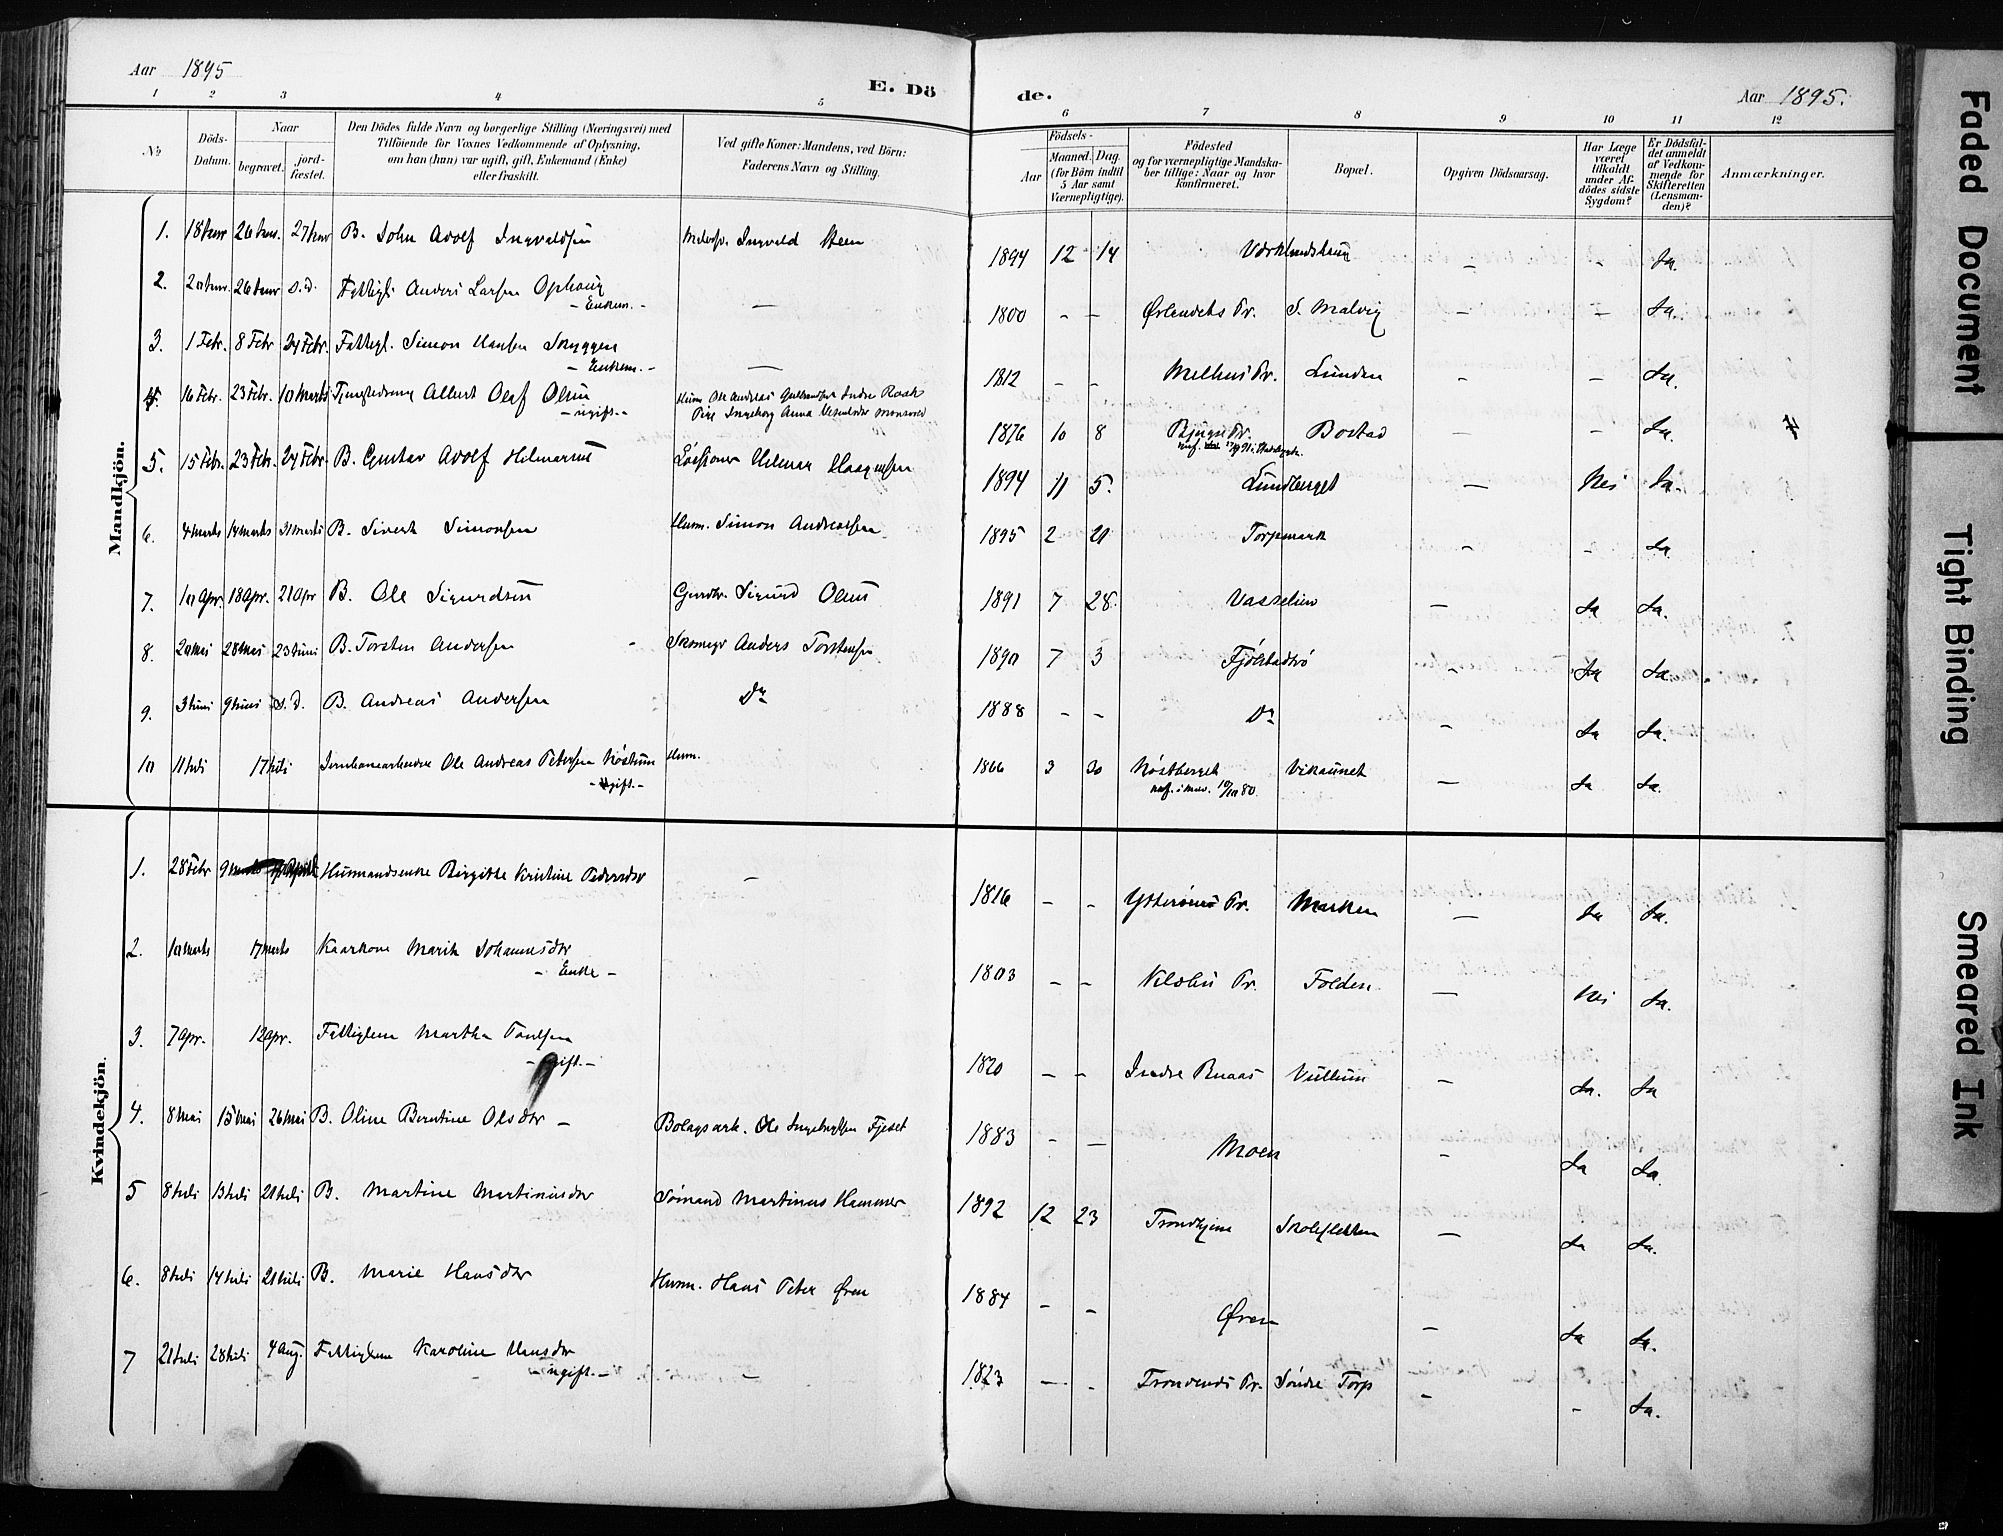 Aar 1895
E. Döde.
Aar 1895.
1 2 3 4 5 6 7 8 9 10 11 12
No
Döds-Datum.
Naar
begravet. jord-fæstet.
Den Dödes fulde Navn og borgerlige Stilling (Næringsvei) med
Tilföiende for Voxnes Vedkommende af Oplysning,
om han (hun) var ugift, gift, Enkemand (Enke)
eller fraskilt.
Ved gifte Koner: Mandens, ved Börn:
Faderens Navn og Stilling.
Födsels-
Aar Maaned. Dag.
(for Börn indtil
5 Aar samt
Værnepligtige).
Födested
og for værnepligtige Mandska-
ber tillige: Naar og hvor
konfirmeret.
Bopæl.
Opgiven Dödsaarsag.
Har Læge
været
tilkaldt
under Af-
dödes sidste
Sygdom?
Er Dödsfal-
det anmeldt
af Vedkom-
mende for
Skifteretten
(Lensman-
den)?
Anmærkninger.
Mandkjön.
1. 18 26 27 B. John Adolf Ingvaldsen Ingvald 1894 12 14 - - Ja.
2. 26 s.d. Anders Larsen Ophaug - 1800 - - Ørlandets Pr. S. Malvig - - Ja.
- Enkem. -
3. 1 Febr. 8 Febr 24 Febr. Fattigl. Simon Hansen - 1812 - - Melhus Pr. Lunden - - Ja.
- Enkem. -
4. 16 Febr. 23 Febr. 10 Marts Albert Olaf Olsen Ole Andreas 1876 10 8 Bjugn Pr. Bostad - - Ja.
- ugift. - Pige Ingeborg Anna
5. 15 Febr. 23 Febr. 24 Febr. B. Gustav Adolf Hilmarsen Hilmar Haagensen 1894 11 5. Lundberget - Nei Ja.
6. 4 Marts 14 Marts 31 Marts B. Sivert Simonsen Husm. Simon Andreassen 1895 2 21 Torpmark - - Ja
7. 10 Apr. 18 Apr. 21 Apr B. Ole Sigurdsen Gaardbr. Sigurd Olsen 1891 7 28. Vasselien - Ja Ja.
8. 20 Mai 28 Mai 23 Juni B. Torsten Andersen Skomagr Anders Torstensen 1890 7 3 - Ja Ja.
9. 3 Juni 9 Juni s.d. B. Andreas Andersen Do 1888 - - Do - Ja Ja.
10 11 Juli 17 Juli Jernbanearbeider Ole Andreas Petersen Husm. 1866 3 30 Vikaunet - Ja Ja.
- Ugift. -
Kvindekjön.
1. 28 Febr 9 Marts Husmandsenke Birgitte Kristine Pedersdtr - 1816 - - Ytterøens Pr. Marken - Ja Ja.
2. 10 Marts 17 Marts Kaarkone Marit Johannesdtr 1803 - - Klæbu Pr. Folden - Nei Ja.
- Enke -
3. 7 Apr. 12 Apr. Fattiglem Martha Paulsen 1820 - - Indre Rnaas Vullum - Ja. Ja
gift. -
4. 8 Mai 15 Mai 26 Mai B. Oline Berntine Olsdtr - Bolagsarb. Ole Ingebrigtsen Fjeset 1883 - - Moen - Ja Ja.
5 8 Juli 13 Juli 21 Juli B. Martine Martinusdtr Sømand Martinus Hammer 1892 12 23 Trondhjem Skoleflekken - Ja Ja.
6. 8 Juli 14 Juli 21 Juli B. Marie Hansdtr Husm. Hans Peter Øren 1884 - - Øren - Ja Ja.
7 21 Juli 28 Juli 4 Aug. Fattiglem Karoline Hansdtr - 1823 - - Søndre Torp - - Ja.
- ugift. -
Faded Document
Tight Binding
Smeared Ink